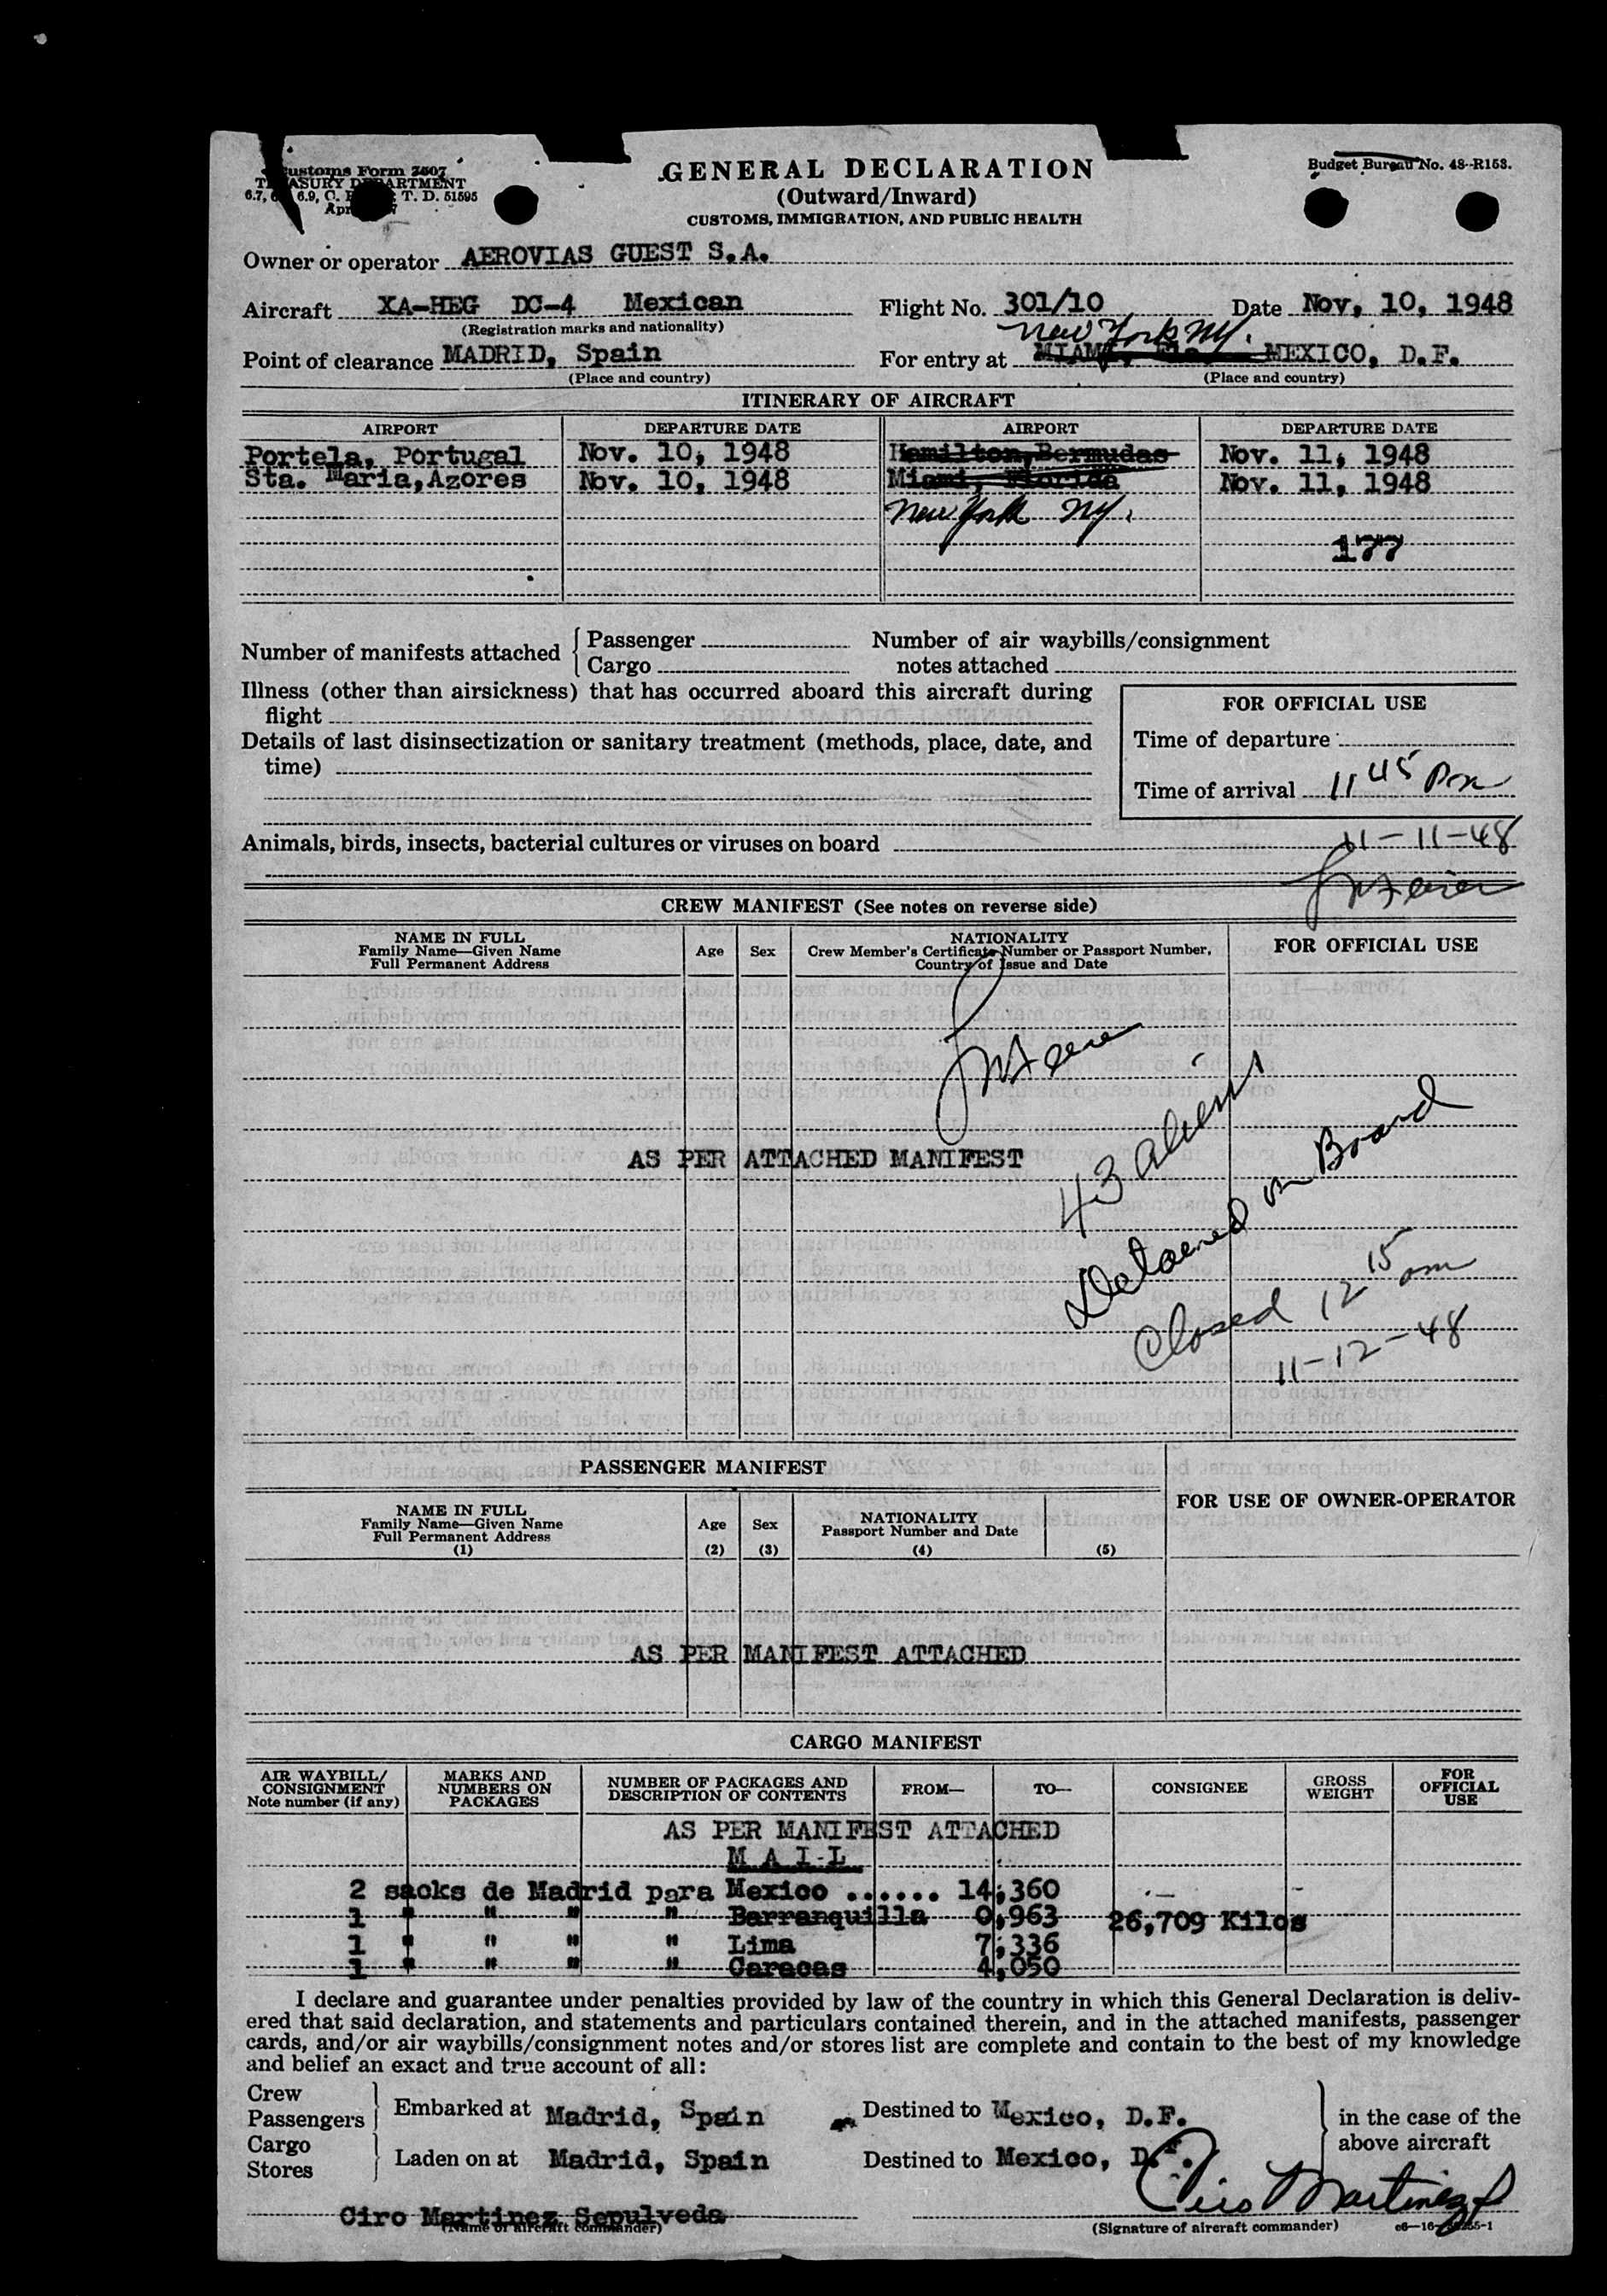 Customs Form 7507
TREASURY DEPARTMENT
6.7, 6.9, C. T. D. 51595
GENERAL DECLARATION
(Outward/Inward)
CUSTOMS, IMMIGRATION, AND PUBLIC HEALTH
Budget Bureau No. 48-R153.
Owner or operator AEROVIAS GUEST S.A.
Aircraft XA-HEG DC-4 Mexican Flight No. 301/10 Date Nov, 10, 1948
(Registration marks and nationality)
New York NY.
Point of clearance MADRID, Spain For entry at MIAMI, Fla, MEXICO, D.F.
(Place and country) (Place and country)
ITINERARY OF AIRCRAFT
AIRPORT DEPARTURE DATE AIRPORT DEPARTURE DATE
Portela, Portugal Nov. 10, 1948 Hamilton, Bermudas Nov. 11, 1948
Sta. Maria, Azores Nov. 10, 1948 Miami, Florida Nov. 11, 1948
New York NY.
177
Number of manifests attached { Passenger Number of air waybills/consignment
Cargo notes attached
Illness (other than airsickness) that has occurred aboard this aircraft during
flight
FOR OFFICIAL USE
Details of last disinsectization or sanitary treatment (methods, place, date, and
time)
Time of departure
Time of arrival 11 45 Pm
Animals, birds, insects, bacterial cultures or viruses on board 11-11-48
CREW MANIFEST (See notes on reverse side)
NAME IN FULL
Family Name—Given Name
Full Permanent Address
Age Sex
NATIONALITY
Crew Member's Certificate Number or Passport Number,
Country of Issue and Date
FOR OFFICIAL USE
AS PER ATTACHED MANIFEST
43 aliens
Detained on Board
Closed 12 15 am
11-12-48
PASSENGER MANIFEST
NAME IN FULL
Family Name—Given Name
Full Permanent Address
(1)
Age
(2)
Sex
(3)
NATIONALITY
Passport Number and Date
(4)
(5)
FOR USE OF OWNER-OPERATOR
AS PER MANIFEST ATTACHED
CARGO MANIFEST
AIR WAYBILL/
CONSIGNMENT
Note number (if any)
MARKS AND
NUMBERS ON
PACKAGES
NUMBER OF PACKAGES AND
DESCRIPTION OF CONTENTS
FROM—
TO—
CONSIGNEE
GROSS
WEIGHT
FOR
OFFICIAL
USE
AS PER MANIFEST ATTACHED
M A I L
2 sacks de Madrid para Mexico ...... 14,360
1 " " " " Barranquilla 0,963 26,709 Kilos
1 " " " " Lima 7,336
1 " " " " Caracas 4,050
I declare and guarantee under penalties provided by law of the country in which this General Declaration is deliv-
ered that said declaration, and statements and particulars contained therein, and in the attached manifests, passenger
cards, and/or air waybills/consignment notes and/or stores list are complete and contain to the best of my knowledge
and belief an exact and true account of all:
Crew
Passengers } Embarked at Madrid, Spain Destined to Mexico, D.F.
Cargo
Stores } Laden on at Madrid, Spain Destined to Mexico, D.F.
} in the case of the
above aircraft
Ciro Martinez Sepulveda Ciro Martinez S
(Name of aircraft commander) (Signature of aircraft commander)